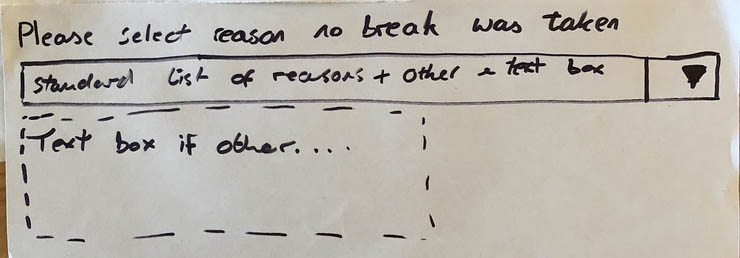 Please select reason no break was taken
Standard List of reasons + other + text box
Text box if other....